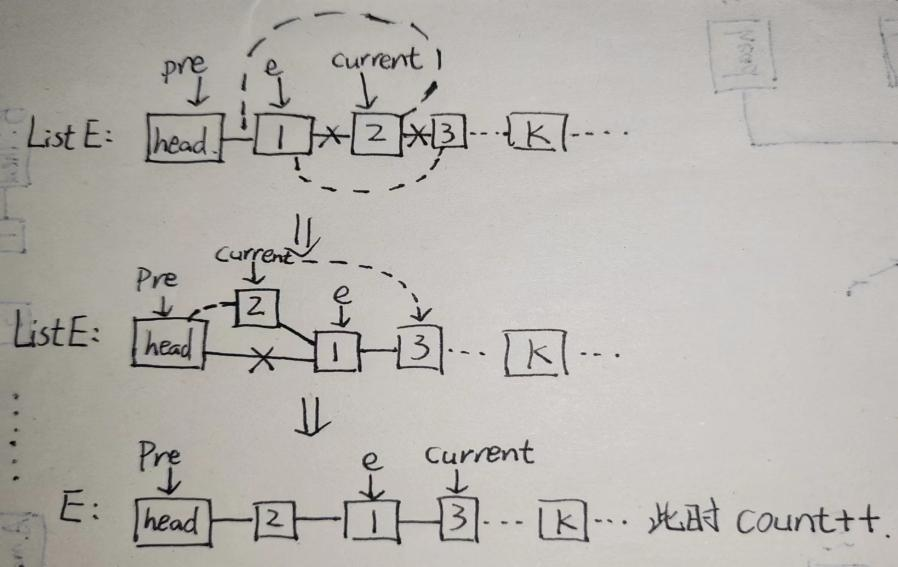 pre e current
List E: head 1 2 3 ... K ....
current
Pre 2 e
List E: head 1 3 ... K ...
Pre e current
E: head 2 1 3 ... K ... 此时 count++.